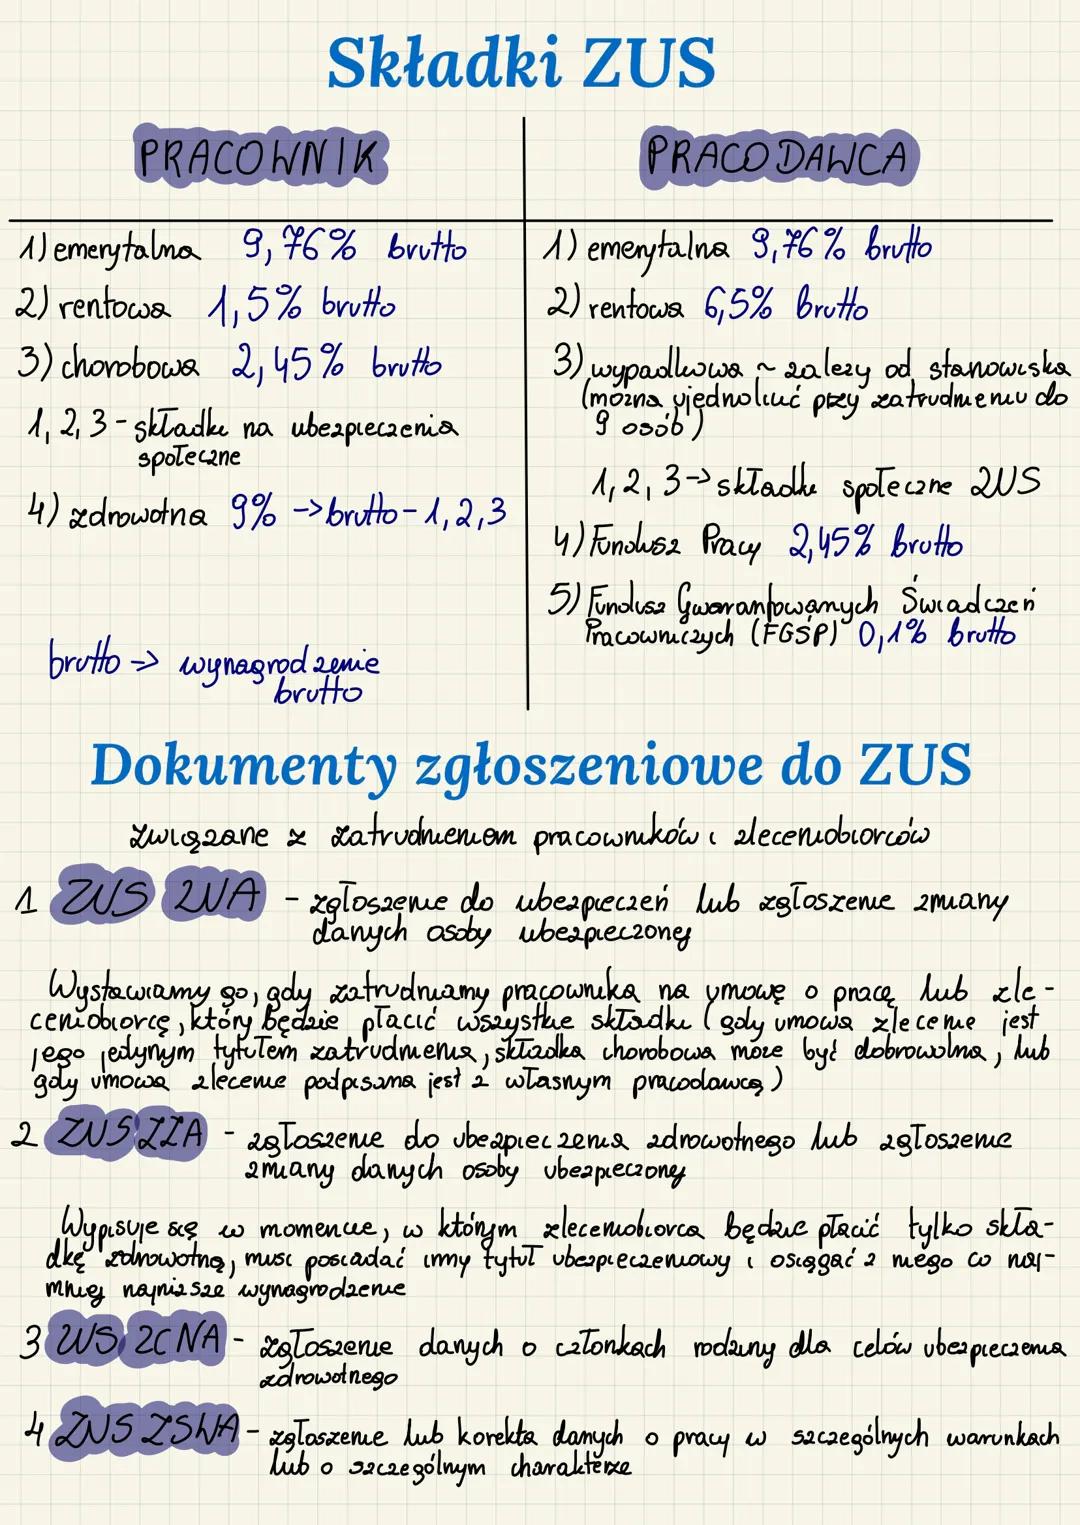 Składki ZUS
PRACOWNIK
1) emerytalna 9,76% brutto
2) rentowa 1,5% brutto
3) chorobowa 2,45% brutto
1, 2, 3 - składki na ubezpieczenia
społeczne
4) zdrowotna 9% -> brutto - 1, 2, 3
brutto -> wynagrodzenie
brutto
PRACODAWCA
1) emerytalna 9,76% brutto
2) rentowa 6,5% brutto
3) wypadkowa ~ zależy od stanowiska
(można ujednolicić przy zatrudnieniu do
9 osób)
1, 2, 3 -> składki społeczne ZUS
4) Fundusz Pracy 2,45% brutto
5) Fundusz Gwarantowanych Świadczeń
Pracowniczych (FGŚP) 0,1% brutto
Dokumenty zgłoszeniowe do ZUS
związane z zatrudnieniem pracowników i zleceniobiorców
1 ZUS ZUA - zgłoszenie do ubezpieczeń lub zgłoszenie zmiany
danych osoby ubezpieczonej
Wystawiamy go, gdy zatrudniamy pracownika na umowę o pracę lub zle-
ceniobiorcę, który będzie płacić wszystkie składki (gdy umowa zlecenie jest
jego jedynym tytułem zatrudnienia, składka chorobowa może być dobrowolna, lub
gdy umowa zlecenie podpisana jest z własnym pracodawcą)
2 ZUS ZZA - zgłoszenie do ubezpieczenia zdrowotnego lub zgłoszenie
zmiany danych osoby ubezpieczonej
Wypisuje się w momencie, w którym zleceniobiorca będzie płacić tylko skła-
dkę zdrowotną, musi posiadać inny tytuł ubezpieczeniowy i osiągać z niego co naj-
mniej najniższe wynagrodzenie
3 ZUS ZCNA - zgłoszenie danych o członkach rodziny dla celów ubezpieczenia
zdrowotnego
4 ZUS ZSWA - zgłoszenie lub korekta danych o pracy w szczególnych warunkach
lub o szczególnym charakterze